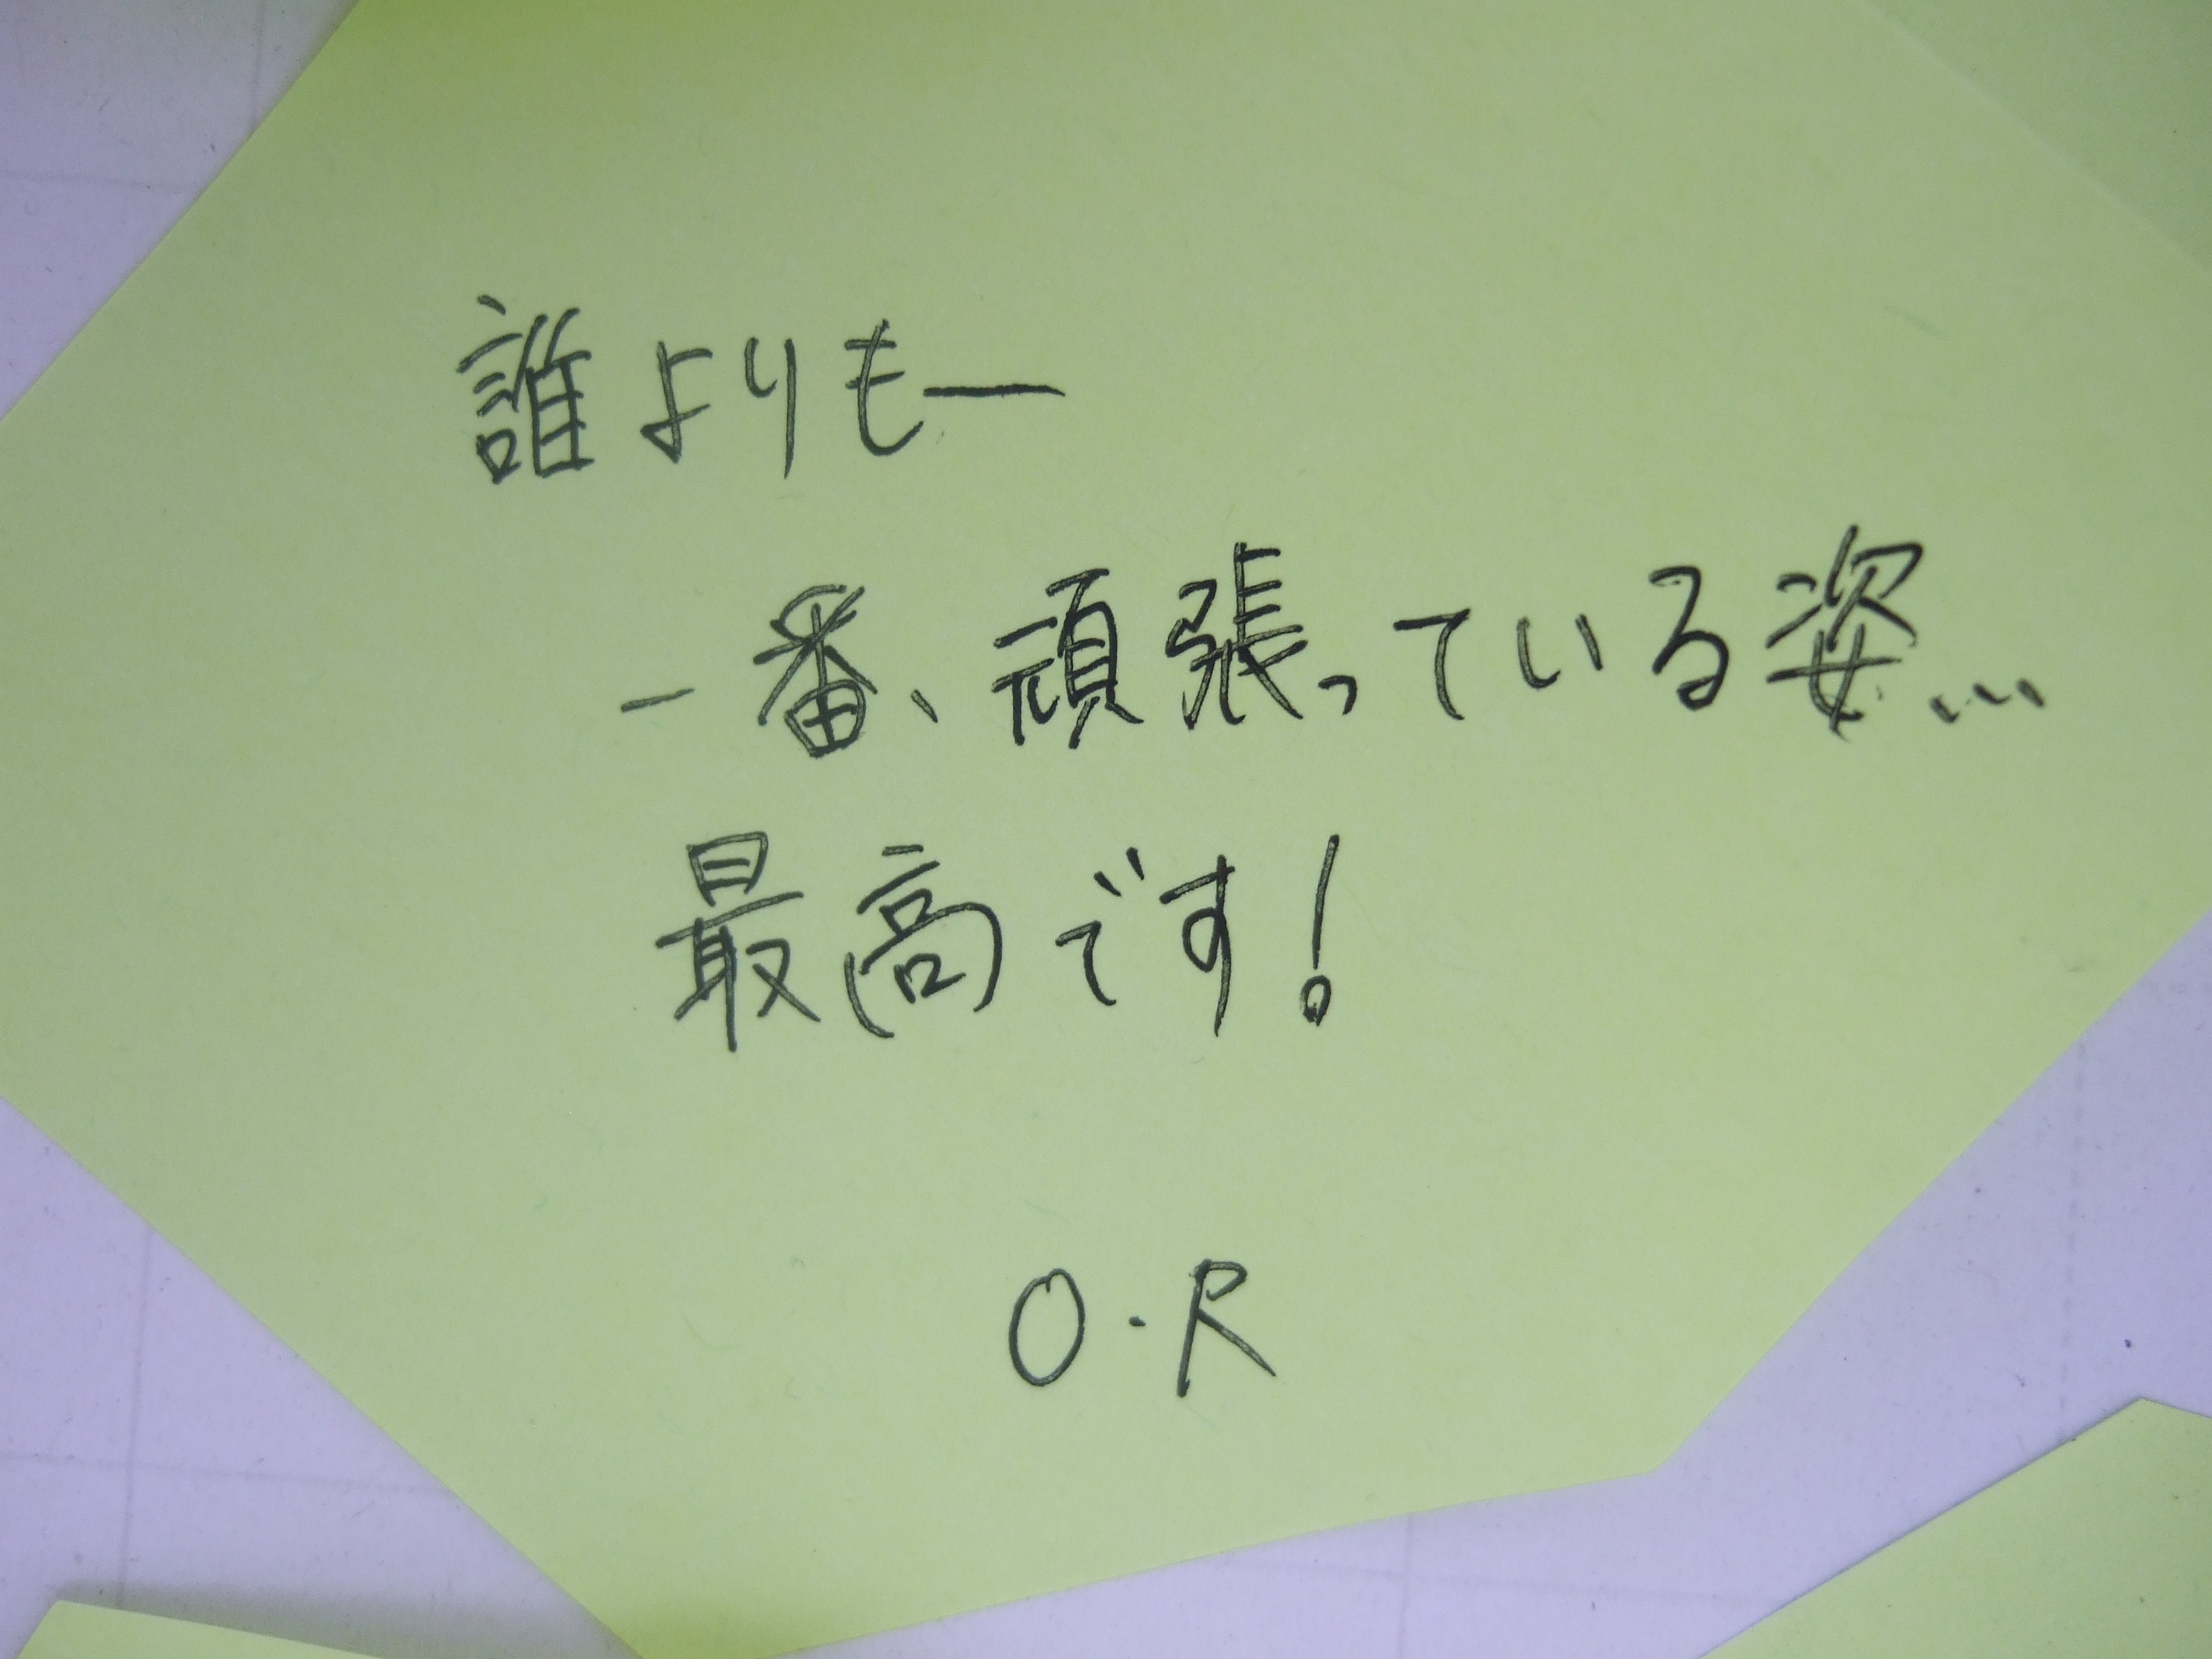 誰よりも―
一番、頑張っている姿...
最高です!
O・R